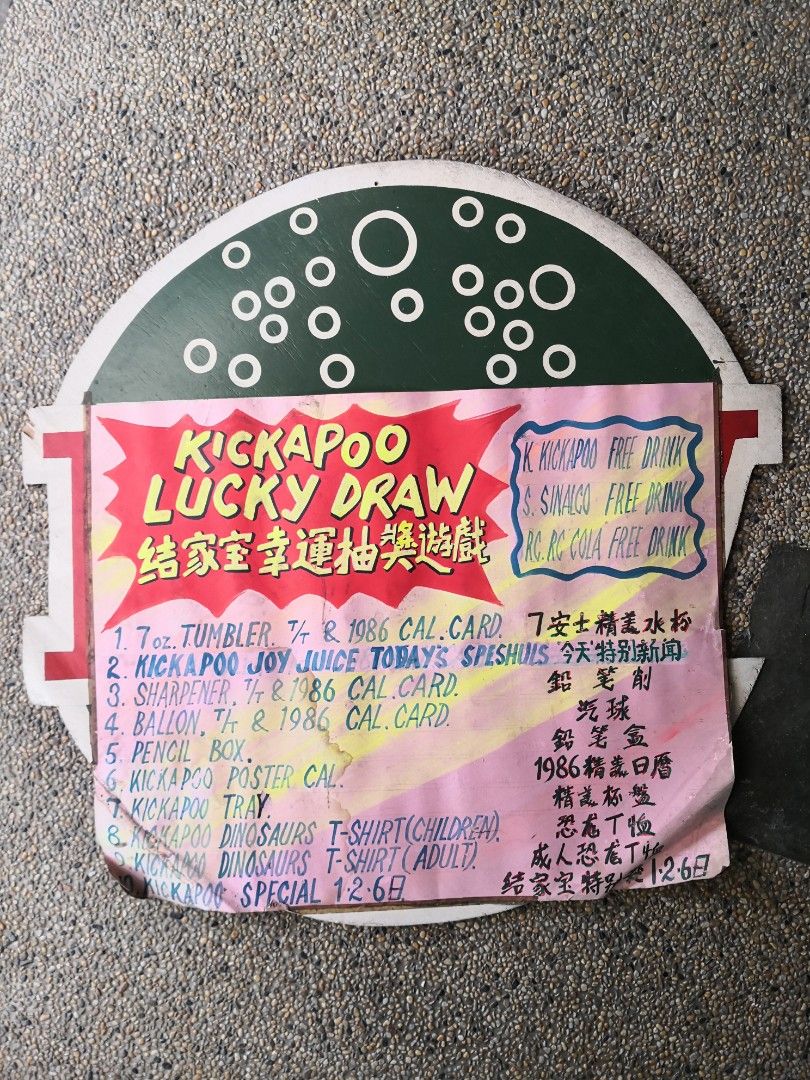 KICKAPOO
LUCKY DRAW
结家宝幸運抽獎遊戲
K. KICKAPOO FREE DRINK
S. SINALCO FREE DRINK
RC. RC COLA FREE DRINK
1. 7 oz. TUMBLER. T/T & 1986 CAL. CARD. 7安士精美水杯
2. KICKAPOO JOY JUICE TODAY'S SPESHULS 今天特别新闻
3. SHARPENER, T/T & 1986 CAL. CARD. 鉛笔削
4. BALLON, T/T & 1986 CAL. CARD. 汽球
5. PENCIL BOX. 鉛笔盒
6. KICKAPOO POSTER CAL. 1986精美日曆
7. KICKAPOO TRAY. 精美杯盤
8. KICKAPOO DINOSAURS T-SHIRT (CHILDREN). 恐龙T恤
9. KICKAPOO DINOSAURS T-SHIRT (ADULT). 成人恐龙T恤
KICKAPOO SPECIAL 1·2·6日 结家宝特别 1·2·6日